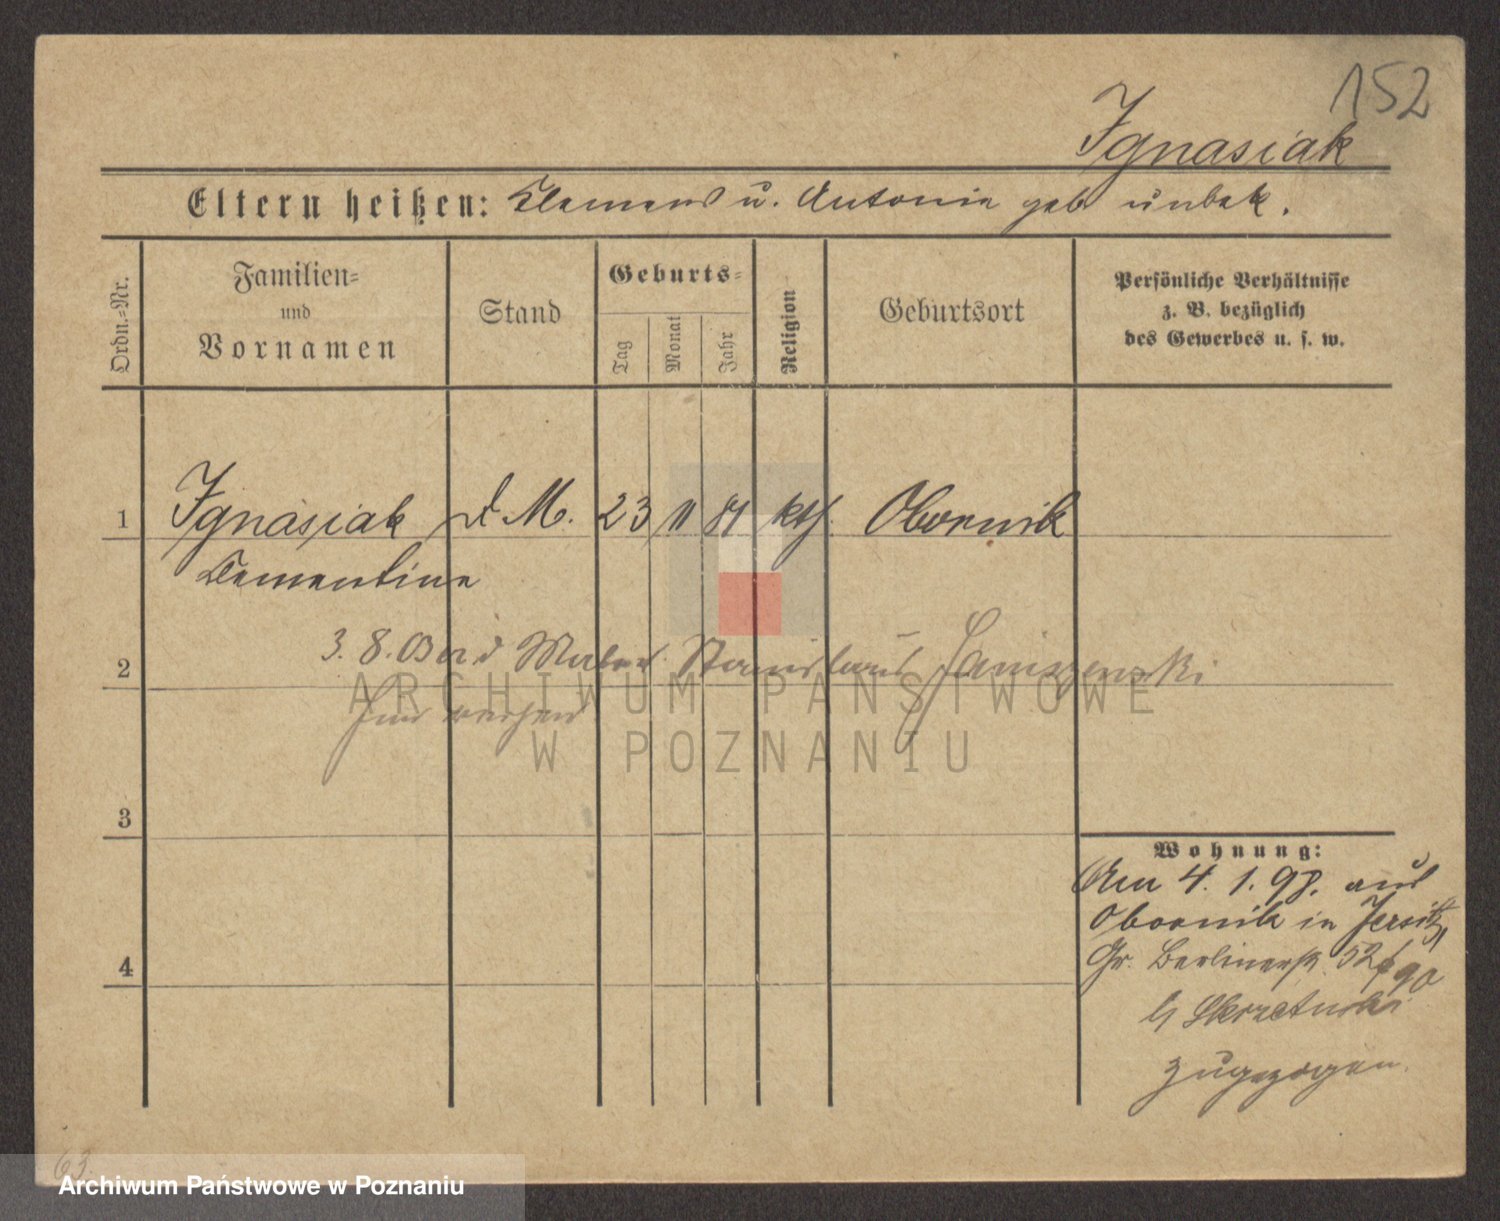 152
Ignasiak
Eltern heißen: Clemens u. Antonie geb unbek.
Ordn.=Nr.
Familien=
und
Vornamen
Stand
Geburts=
Tag
Monat
Jahr
Religion
Geburtsort
Persönliche Verhältnisse
z. B. bezüglich
des Gewerbes u. s. w.
1 Ignasiak d. M. 23 11 81 kth. Obornik
Clementine
3. 8. 03 Maler Stanislaus Janiszewski
2
ARCHIWUM PAŃSTWOWE
W POZNANIU
3
Wohnung:
Am 4. 1. 98. aus
Obornik in Jersitz,
Gr. Berlinerstr. 52/90
b/ Skrzetuski
zugezogen.
4
63.
Archiwum Państwowe w Poznaniu